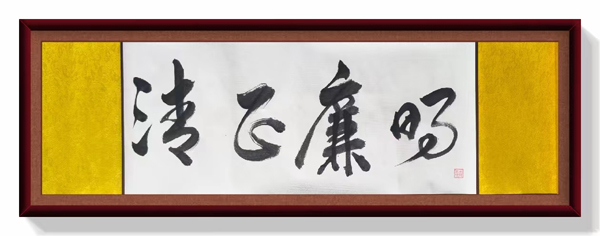 清正廉明